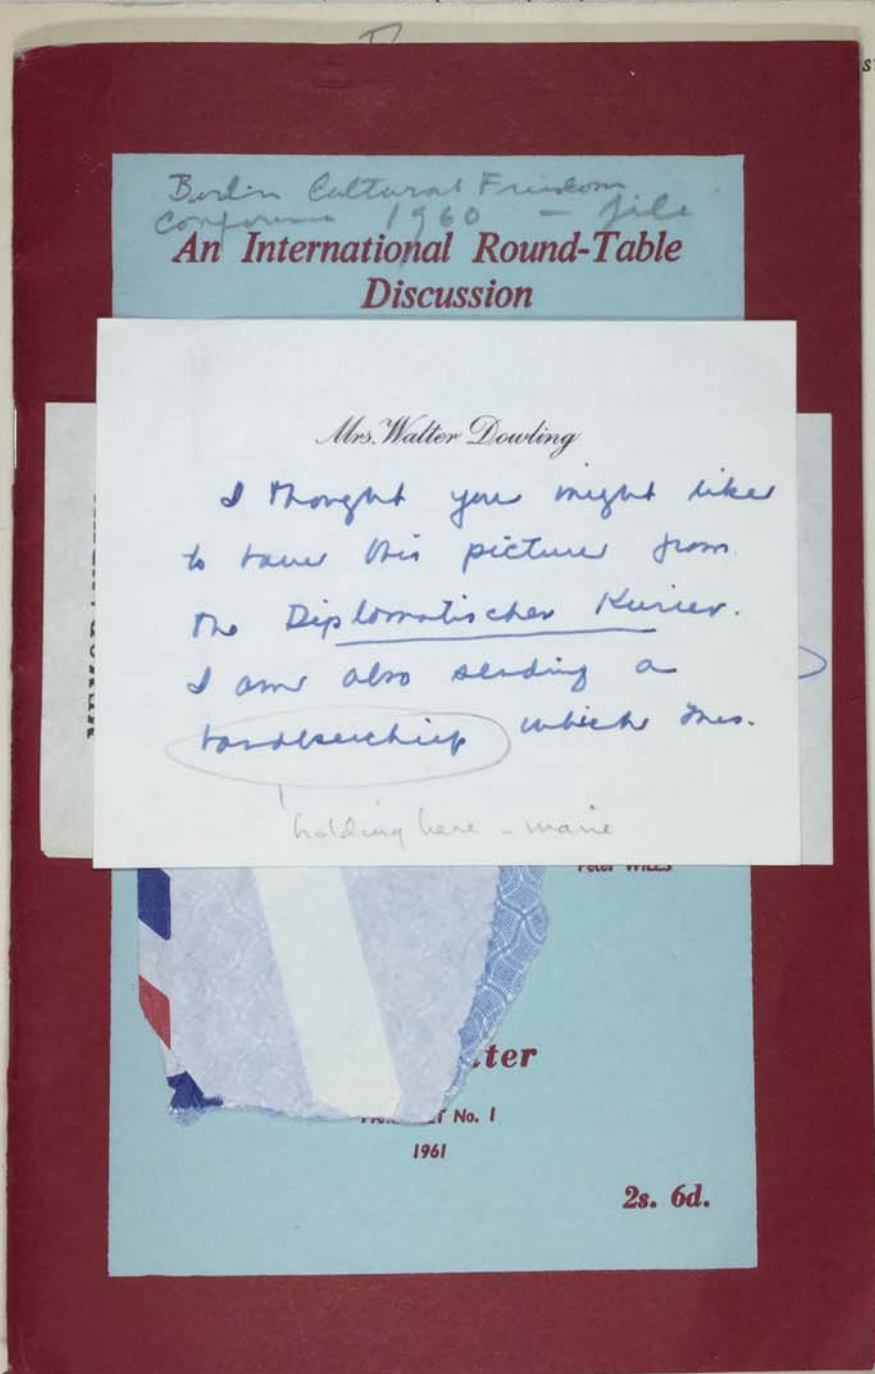 Berlin Cultural Freedom
Conference 1960 - file
An International Round-Table
Discussion
Mrs. Walter Dowling
I thought you might like
to have this picture from
the Diplomatischer Kurier.
I am also sending a
handkerchief which Mrs.
holding here - marie
Peter WILES
No. 1
1961
2s. 6d.